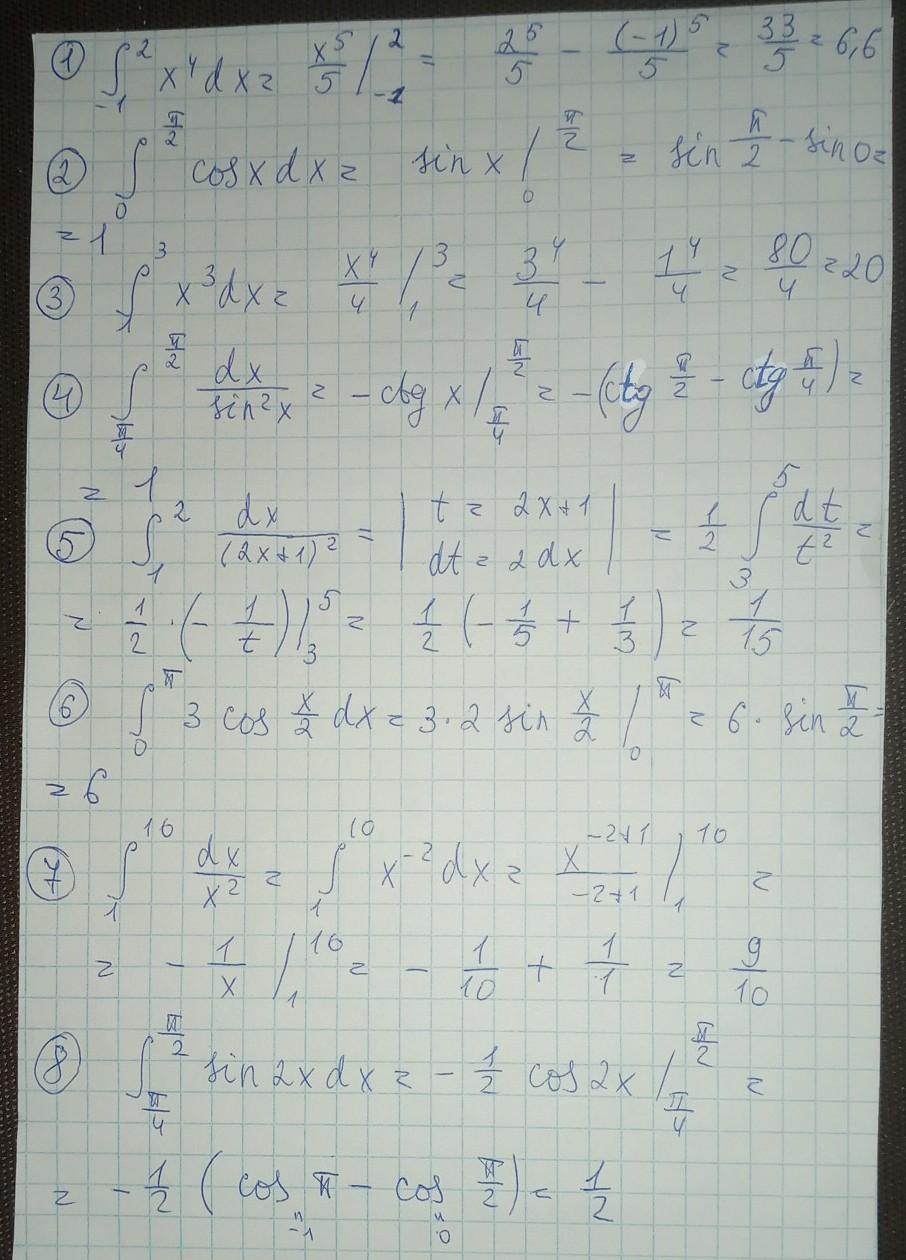 ① ∫₋₁² x⁴dx = x⁵/5 |₋₁² = 2⁵/5 - (-1)⁵/5 = 33/5 = 6,6
② ∫₀^(π/2) cosx dx = sin x |₀^(π/2) = sin π/2 - sin 0 =
= 1
③ ∫₁³ x³dx = x⁴/4 |₁³ = 3⁴/4 - 1⁴/4 = 80/4 = 20
④ ∫_(π/4)^(π/2) dx/sin²x = -ctg x |_(π/4)^(π/2) = -(ctg π/2 - ctg π/4) =
= 1
⑤ ∫₁² dx/(2x+1)² = | t = 2x+1 dt = 2dx | = 1/2 ∫₃⁵ dt/t² =
= 1/2 · (- 1/t) |₃⁵ = 1/2 (- 1/5 + 1/3) = 1/15
⑥ ∫₀^π 3 cos x/2 dx = 3·2 sin x/2 |₀^π = 6 · sin π/2 =
= 6
⑦ ∫₁¹⁰ dx/x² = ∫₁¹⁰ x⁻² dx = x^(-2+1)/(-2+1) |₁¹⁰ =
= - 1/x |₁¹⁰ = - 1/10 + 1/1 = 9/10
⑧ ∫_(π/4)^(π/2) sin2x dx = - 1/2 cos2x |_(π/4)^(π/2) =
= - 1/2 (cos π - cos π/2) = 1/2
" -1 " 0